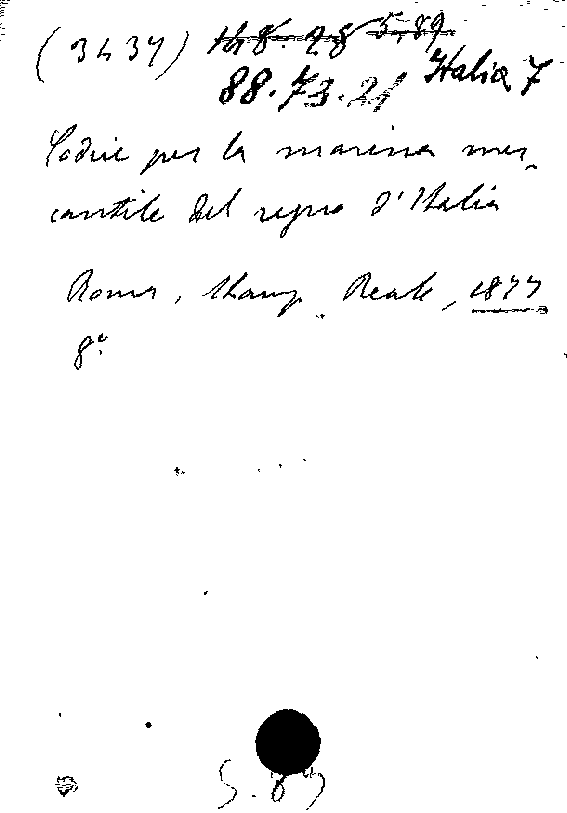 (3437)
88.73.21 Italia 7
Codice per la marina mer-
cantile del regno d'Italia
Roma, Stamp. Reale, 1877
8º